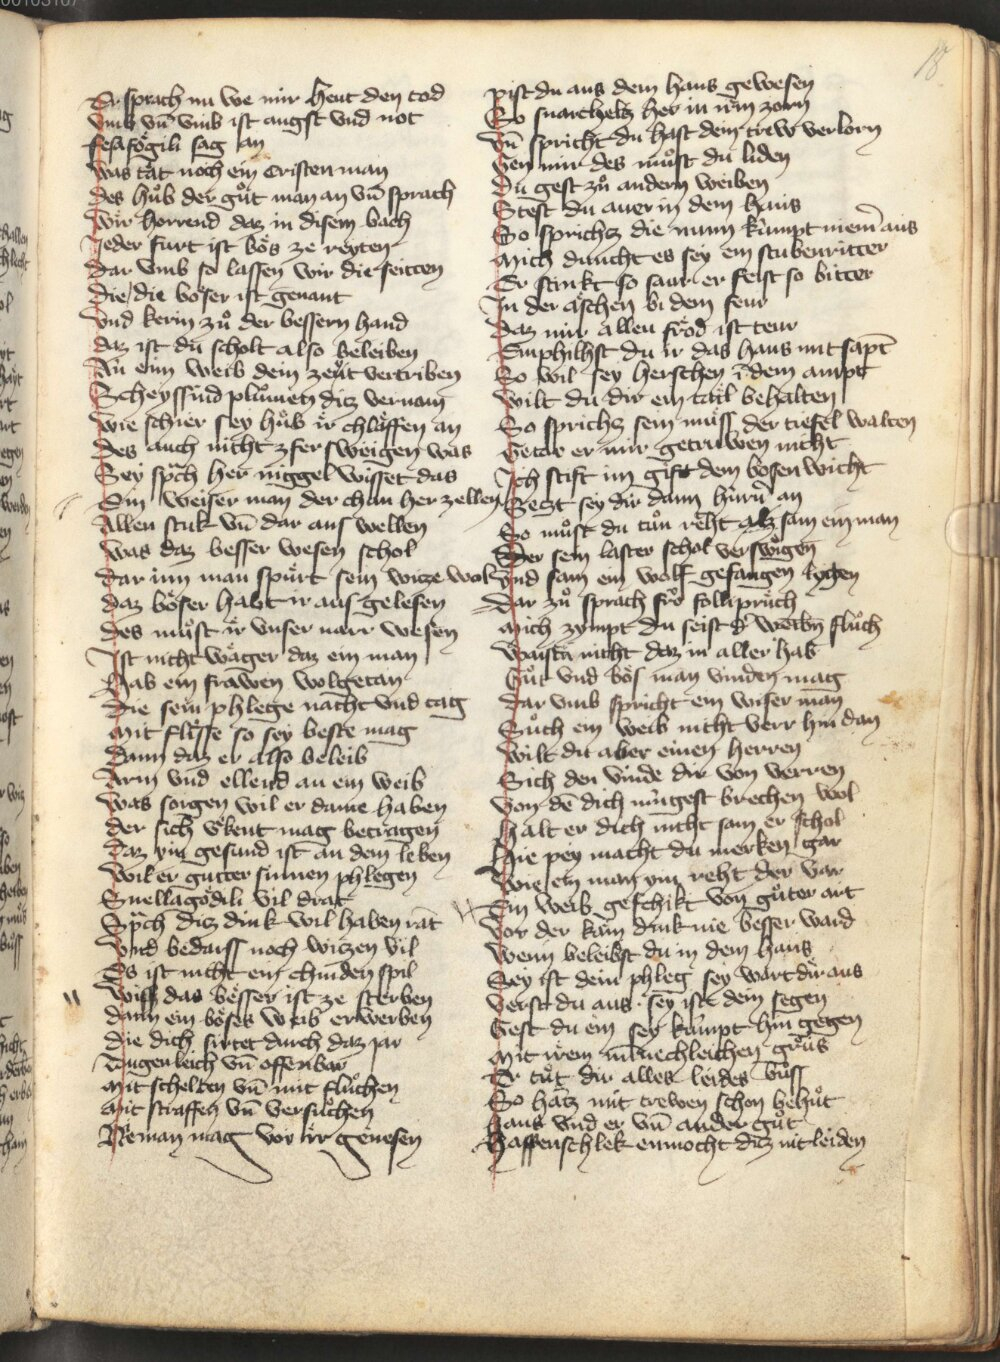 18
Er sprach nu we mir heut den tod
Vmb vn̄ vmb ist angst vnd not
fesafögili sag an
Was tät noch ein cristen man
Des hůb der gůt man an vn̄ sprach
Wir horrend daz in disem bach
Jeder furt ist bös ze reyten
Dar vmb so lassen wir die seitten
Die die böser ist genant
Vnd kerin zů der bessern hand
Daz ist du scholt also beleiben
An eim weib dein zeut vertriben
Scheyssind plůmen ditz vernam
Wie schier sey hůb ir chläffen an
Des auch nicht zfersweigen was
Sey sprach her niggel wisset das
Ein weiser man der chan her zellen
Allen stuk vn̄ dar aus wellen
Was daz besser wesen schol
Dar inn man spürt sein witze wol
Daz böser habt ir aus gelesen
Des můst ir vnser narr wesen
Jst nicht wäger daz ein man
Hab ein frawen wolgetan
Die sein phlege nacht vnd tag
Mit flisse so sey beste mag
Dann daz er also beleib
Arm vnd ellend an ein weib
Was sorgen wil er danne haben
Der sich mag betragen
Daz ym gesund ist an dem leben
Wil er gutter sinnen phlegen
Snellagödili vil drat
Sprach ditz dink wil haben rat
Vnd bedarff noch witzen vil
Es ist nicht ein chinden spil
Wiss das besser ist ze sterben
Dann ein böses weib erwerben
Die dich sirtet durch daz jar
Taugenleich vn̄ offenbar
Mit schelten vn̄ mit flůchen
Mit straffen vn̄ versůchen
Neman mag vor ir genesen
pist du aus dem haus gewesen
So snarchelz her in irm zorn
Vn̄ spricht du hast dein trew verlorn
Gen mir des můst du liden
Du gest zů andern weiben
Stest du auer in dem haus
So sprichz die nunn kümpt niem̄ aus
Mich duncht es sey ein stubenritter
Er stinkt so saur er feist so bitter
Jn der äschen bi dem feur
Daz mir allen fröd ist teur
Emphilhst du ir das haus mit sapt
So wil sey herschen ī dem ampt
Wilt du dir ein tail behalten
So sprichz sein müss der tiefel walten
Getar er mir getruwen nicht
Jch stift im gift dem bösen wicht
Secz sey dir dann hürn an
So můst du tůn reht alz sam ein man
Der sein laster schol verswigen
Vnd sam ein wolf gefangen ligen
Dar zů sprach fro follipruch
Mich zympt du seist d' weibn flůch
Waistu nicht daz in aller hab
Gůt vnd bös man vinden mag
Dar vmb spricht ein wiser man
Sůch ein weib nicht verr hin dan
Wilt du aber einen herren
Sich den vinde dir von verren
Von dē dich mügest brechen wol
Halt er dich nicht sam er schol
Hie pey macht du merken gar
Wie ein man ym reht der var
Ein weib geschikt von gůter art
Vor der kain dink nie besser ward
Wenn beleibst du in dem haus
Sey ist dein phleg sey wart dir aus
Verst du aus sey ist dein segen
Gest du ein sey kümpt hin gegen
Mit irem mīnechleichen grůs
Er tůt dir alles leides bůss
So hätz mit trewen schon behůt
Haus vnd er vn̄ ander gůt
Haffenschlek enmocht ditz nit leiden